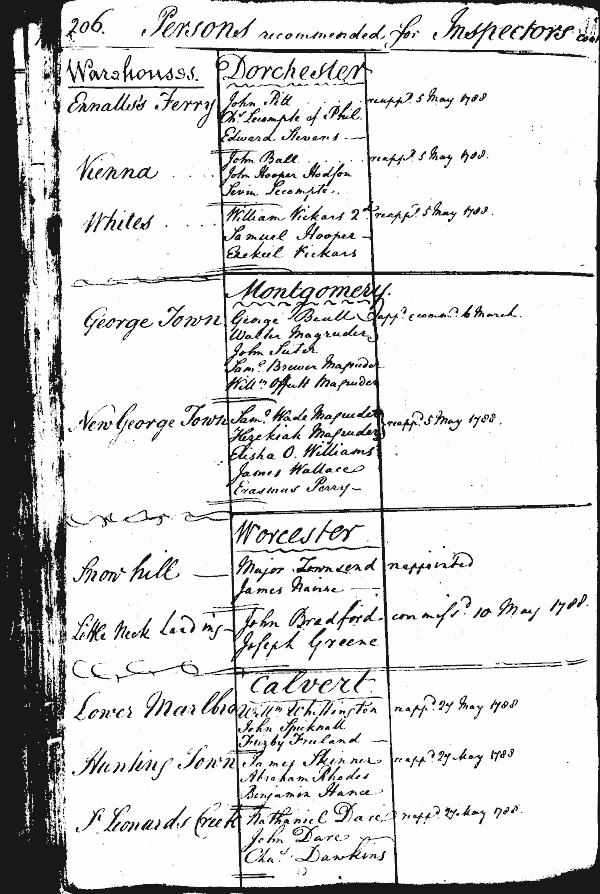 206. Persons recommended for Inspectors
Warehouses. Dorchester
Ennalls's Ferry John Pitt reapp.d 5 May 1788
Cha.s Lecompte of Phil.
Edward Stevens
Vienna John Ball reapp.d 5 May 1788.
John Hooper Hodson
Levin Lecompte
Whites William Vickars 2.d reapp.d 5 May 1788.
Samuel Hooper
Ezekiel Vickars
Montgomery.
George Town George Beall app.d & comm.d 6 March.
Walter Magruder
John Suter
Sam.l Brewer Magruder
Will.m Offutt Magruder
New George Town Sam.l Wade Magruder reapp.d 5 May 1788.
Hezekiah Magruder
Elisha O. Williams
James Wallace
Erasmus Perry
Worcester
Snow hill Major Townsend reappointed
James
Little Neck Landing John Bradford commiss.d 10 May 1788.
Joseph Greene
Calvert
Lower Marlbro Will.m Whittington reapp.d 27 May 1788
John Spicknall
Frizby Freeland
Hunting Town James Skinner reapp.d 27 May 1788
Abraham Rhodes
Benjamin Hance
S.t Leonards Creek Nathaniel Dare reapp.d 27 May 1788.
John Dare
Cha.s Dawkins